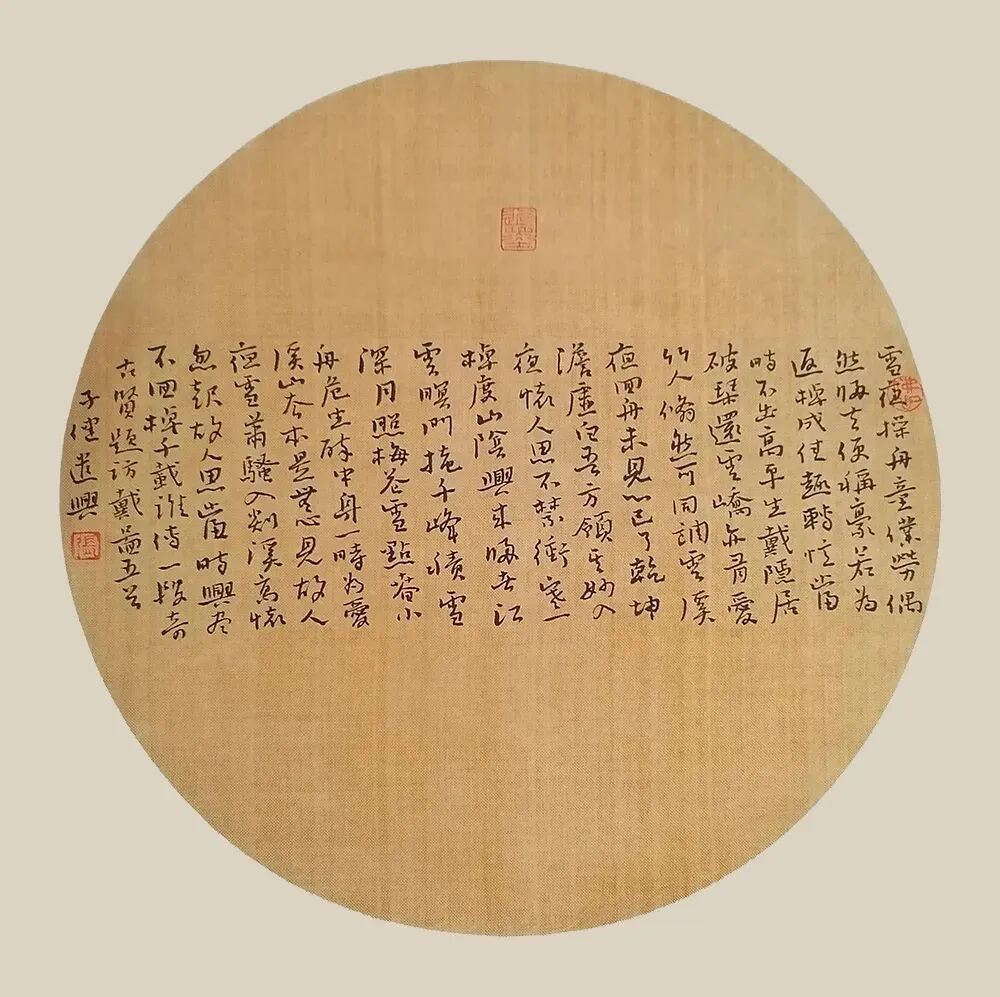 雪夜操舟童僕勞偶
然歸去便稱豪若為
返棹成佳趣轉憶當
時不出高平生戴隱居
破琴還雲嶠亦有愛
竹人翛然可同調雪溪
夜回舟未見心已了乾坤
澹虛白吾方領其妙入
夜懷人思不禁衝寒一
棹度山陰興來歸去江
雲暝門掩千峰積雪
深月照梅花雪點苔小
舟危坐醉中身一時為愛
溪山本是無意見故人
夜雪蕭騷入剡溪高懷
忽起故人思當時興盡
不回棹千載誰傳一段奇
古賢題訪戴圖五首
子健遣興